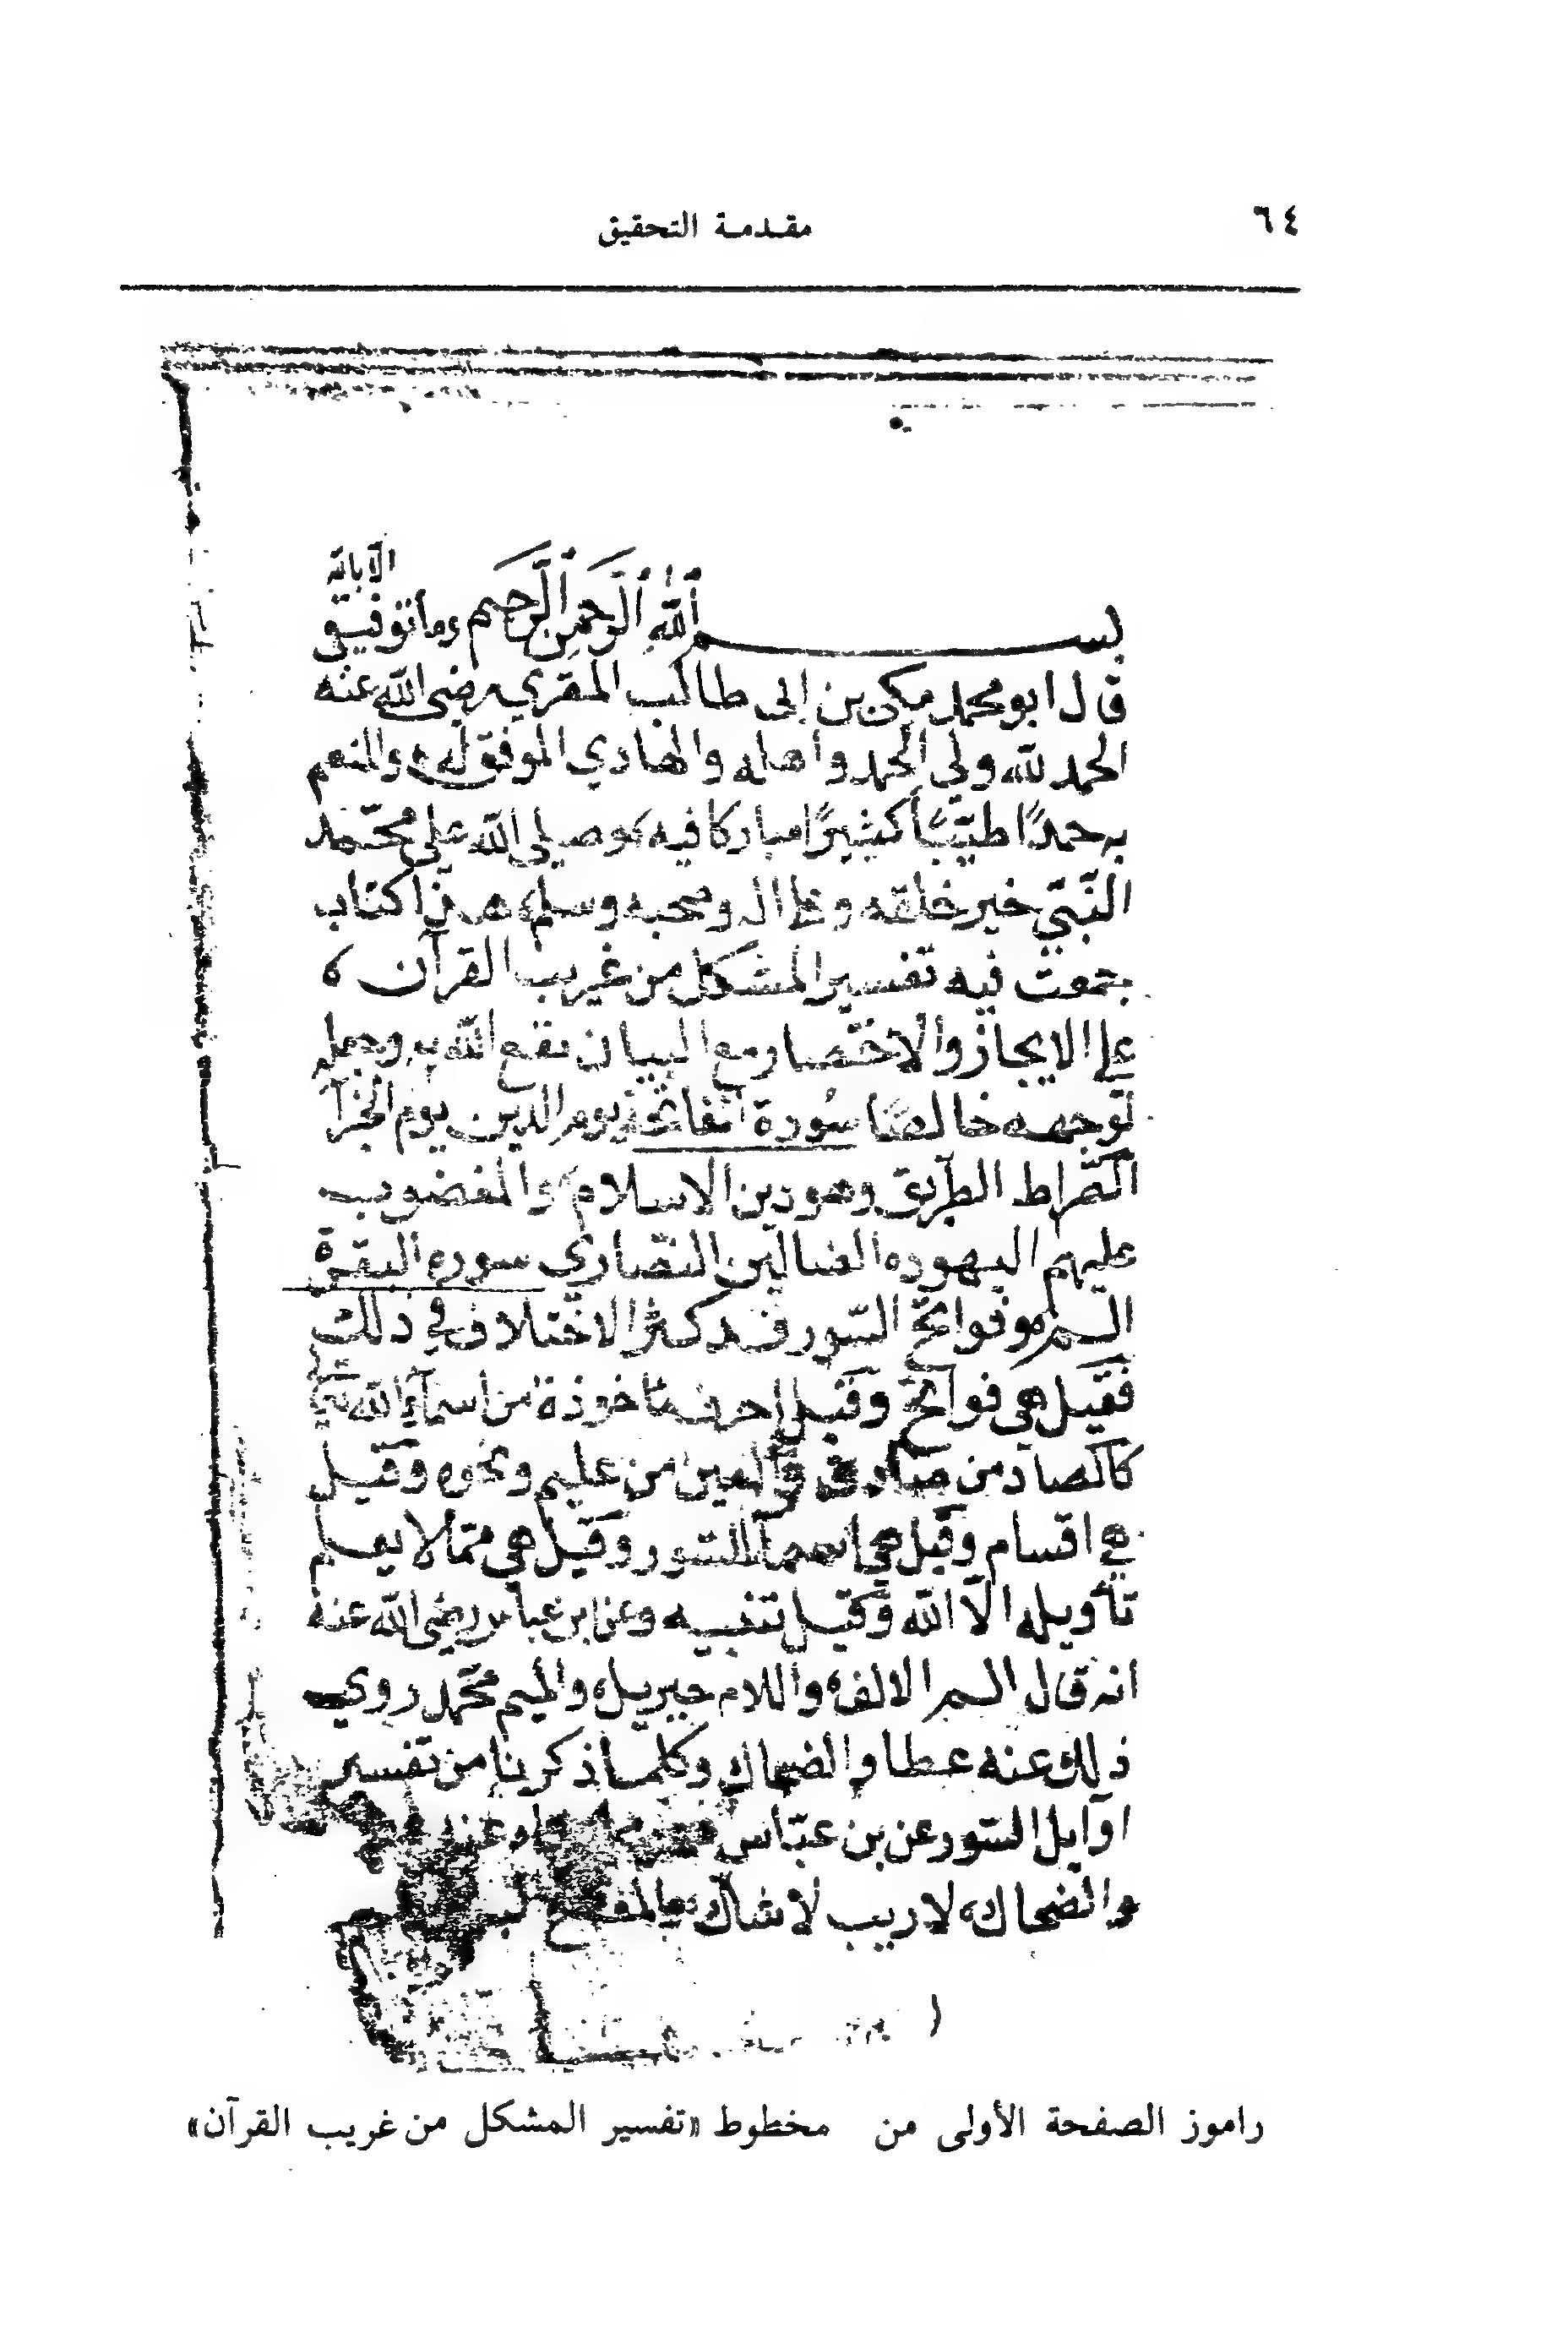 ٦٤
مقـدمـة التحقيق
بسم الله الرحمن الرحيم وما توفيقي الا بالله
قال ابو محمد مكي بن ابى طالب المقري رضى الله عنه
الحمد لله ولي الحمد واهله والهادي الموفق له والمنعم
به حمدًا طيّبًا كثيرًا مباركا فيه وصلى الله على محمّد
النّبيّ خير خلقه وعلى اله وصحبه وسلم هذا كتاب
جمعت فيه تفسير المشكل من غريب القرآن
على الايجاز والاختصار مع البيان نفع الله به وجعله
لوجهه خالصًا سُورة الفاتحة يوم الدين يوم الجزآ
الصراط الطريق وهو دين الاسلام والمغضوب
عليهم اليهود الضالين النصاري سورة البقرة
الم هو فواتح السّور قد كثر الاختلاف في ذلك
فقيل هي فواتح وقيل احرف ماخوذة من اسمآء الله
كالصاد من صادق والعين من عليم ونحوه وقيل
هي اقسام وقيل هي اسمآ السور وقيل هي ممّا لا يعلم
تأويله الّا الله وقيل تنبيه وعن ابن عباس رضى الله عنه
انه قال الم الالف واللام جبريل والميم محمّد روي
ذلك عنه عطا والضحاك وكلما ذكرنا من تفسير
اوآيل السّور عن بن عبّاس
والضحاك لا ريب لا شك
راموز الصفحة الأولى من مخطوط «تفسير المشكل من غريب القرآن»